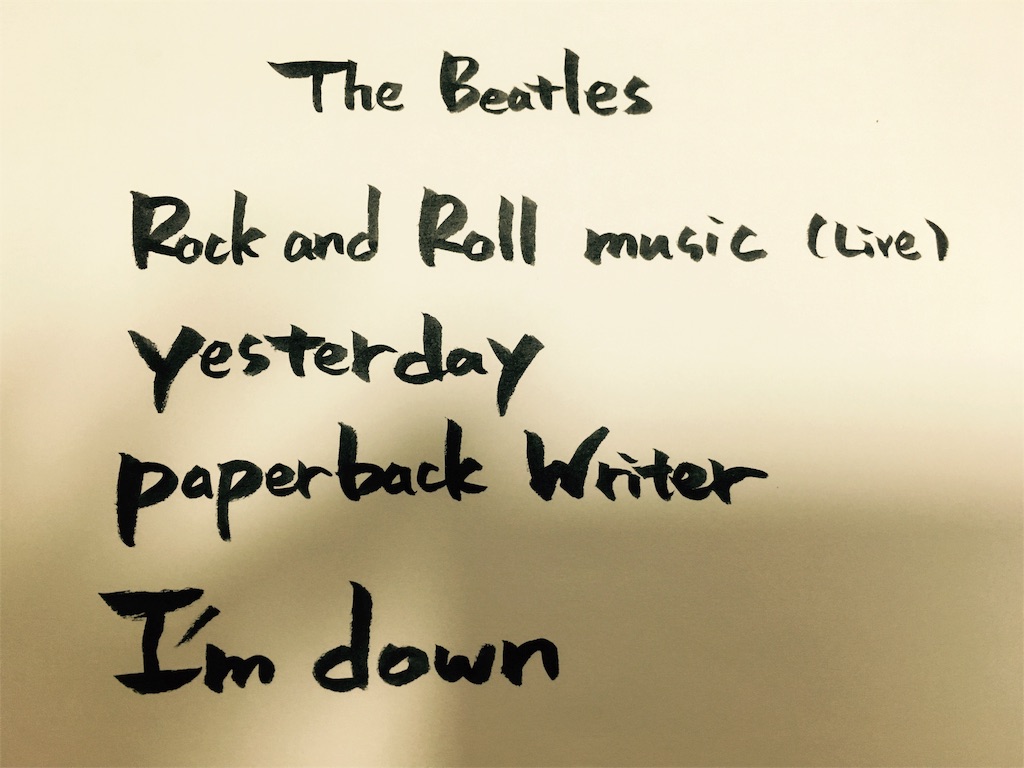 The Beatles
Rock and Roll music (Live)
yesterday
paperback Writer
I'm down